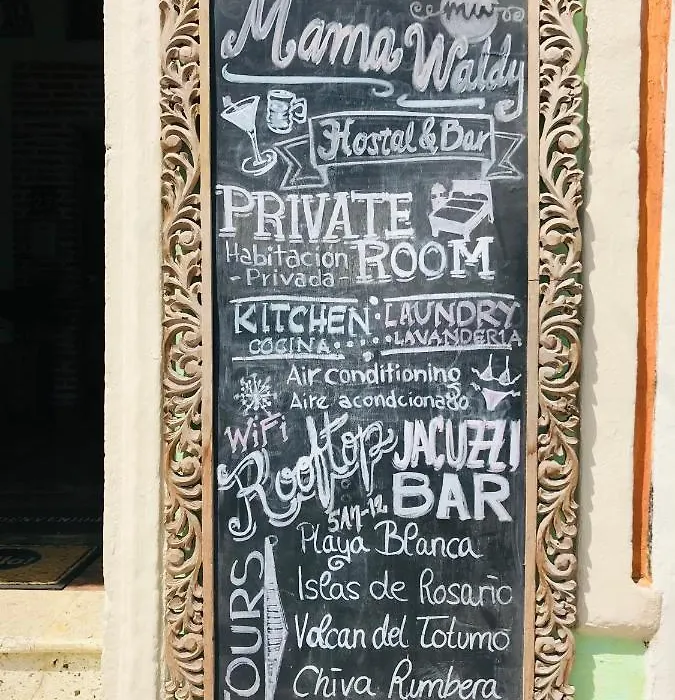 mw
Mama Waldy
Hostal & Bar
PRIVATE
Habitación ROOM
- Privada -
KITCHEN : LAUNDRY
COCINA LAVANDERIA
Air conditioning
Aire acondcionado
WiFi
Rooftop JACUZZI
BAR
5AM-12
TOURS
Playa Blanca
Islas de Rosario
Volcan del Totumo
Chiva Rumbera